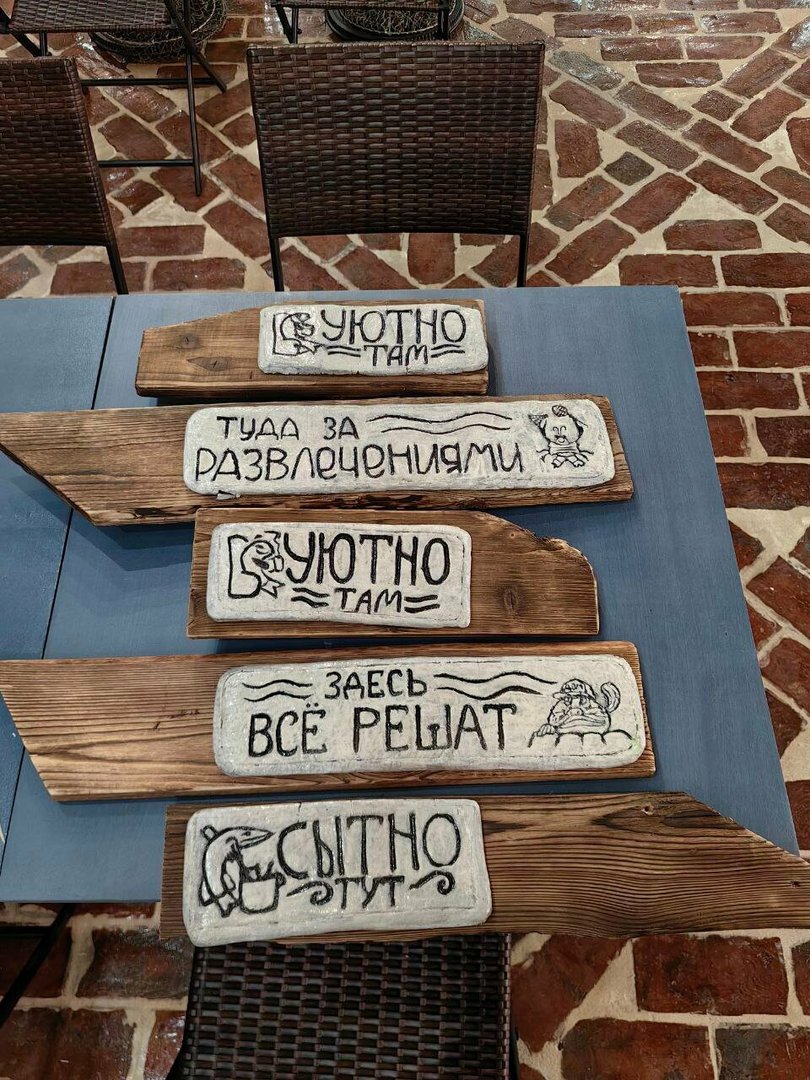 УЮТНО
ТАМ
ТУДА ЗА
РАЗВЛЕЧЕНИЯМИ
УЮТНО
ТАМ
ЗДЕСЬ
ВСЁ РЕШАТ
СЫТНО
ТУТ